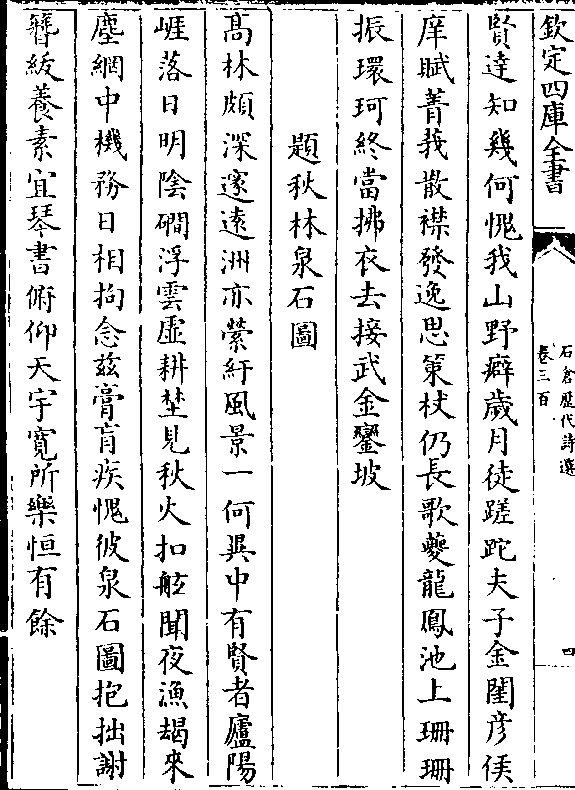 欽定四庫全書
石倉歷代詩選
卷三百
四
賢達知幾何愧我山野癖歲月徒蹉跎夫子金閨彦俟
庠賦菁莪散襟發逸思策杖仍長歌夔龍鳳池上珊珊
振環珂終當拂衣去接武金鑾坡
題秋林泉石圖
髙林頗深邃遠洲亦縈紆風景一何異中有賢者廬陽
崕落日明陰磵浮雲虛耕埜見秋火扣舷聞夜漁朅來
塵網中機務日相拘念兹膏肓疾愧彼泉石圖抱拙謝
簪紱養素宜琴書俯仰天宇寛所樂恒有餘